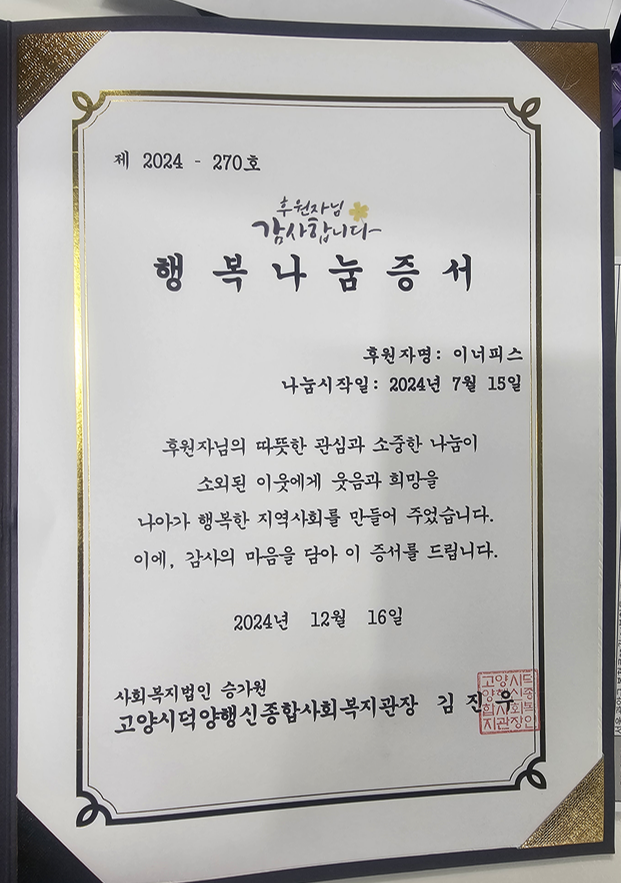 제 2024 - 270호
후원자님
감사합니다
행복나눔증서
후원자명: 이너피스
나눔시작일: 2024년 7월 15일
후원자님의 따뜻한 관심과 소중한 나눔이
소외된 이웃에게 웃음과 희망을
나아가 행복한 지역사회를 만들어 주었습니다.
이에, 감사의 마음을 담아 이 증서를 드립니다.
2024년 12월 16일
사회복지법인 승가원
고양시덕양행신종합사회복지관장 김진우
고양시덕
양행신종
합사회복
지관장인